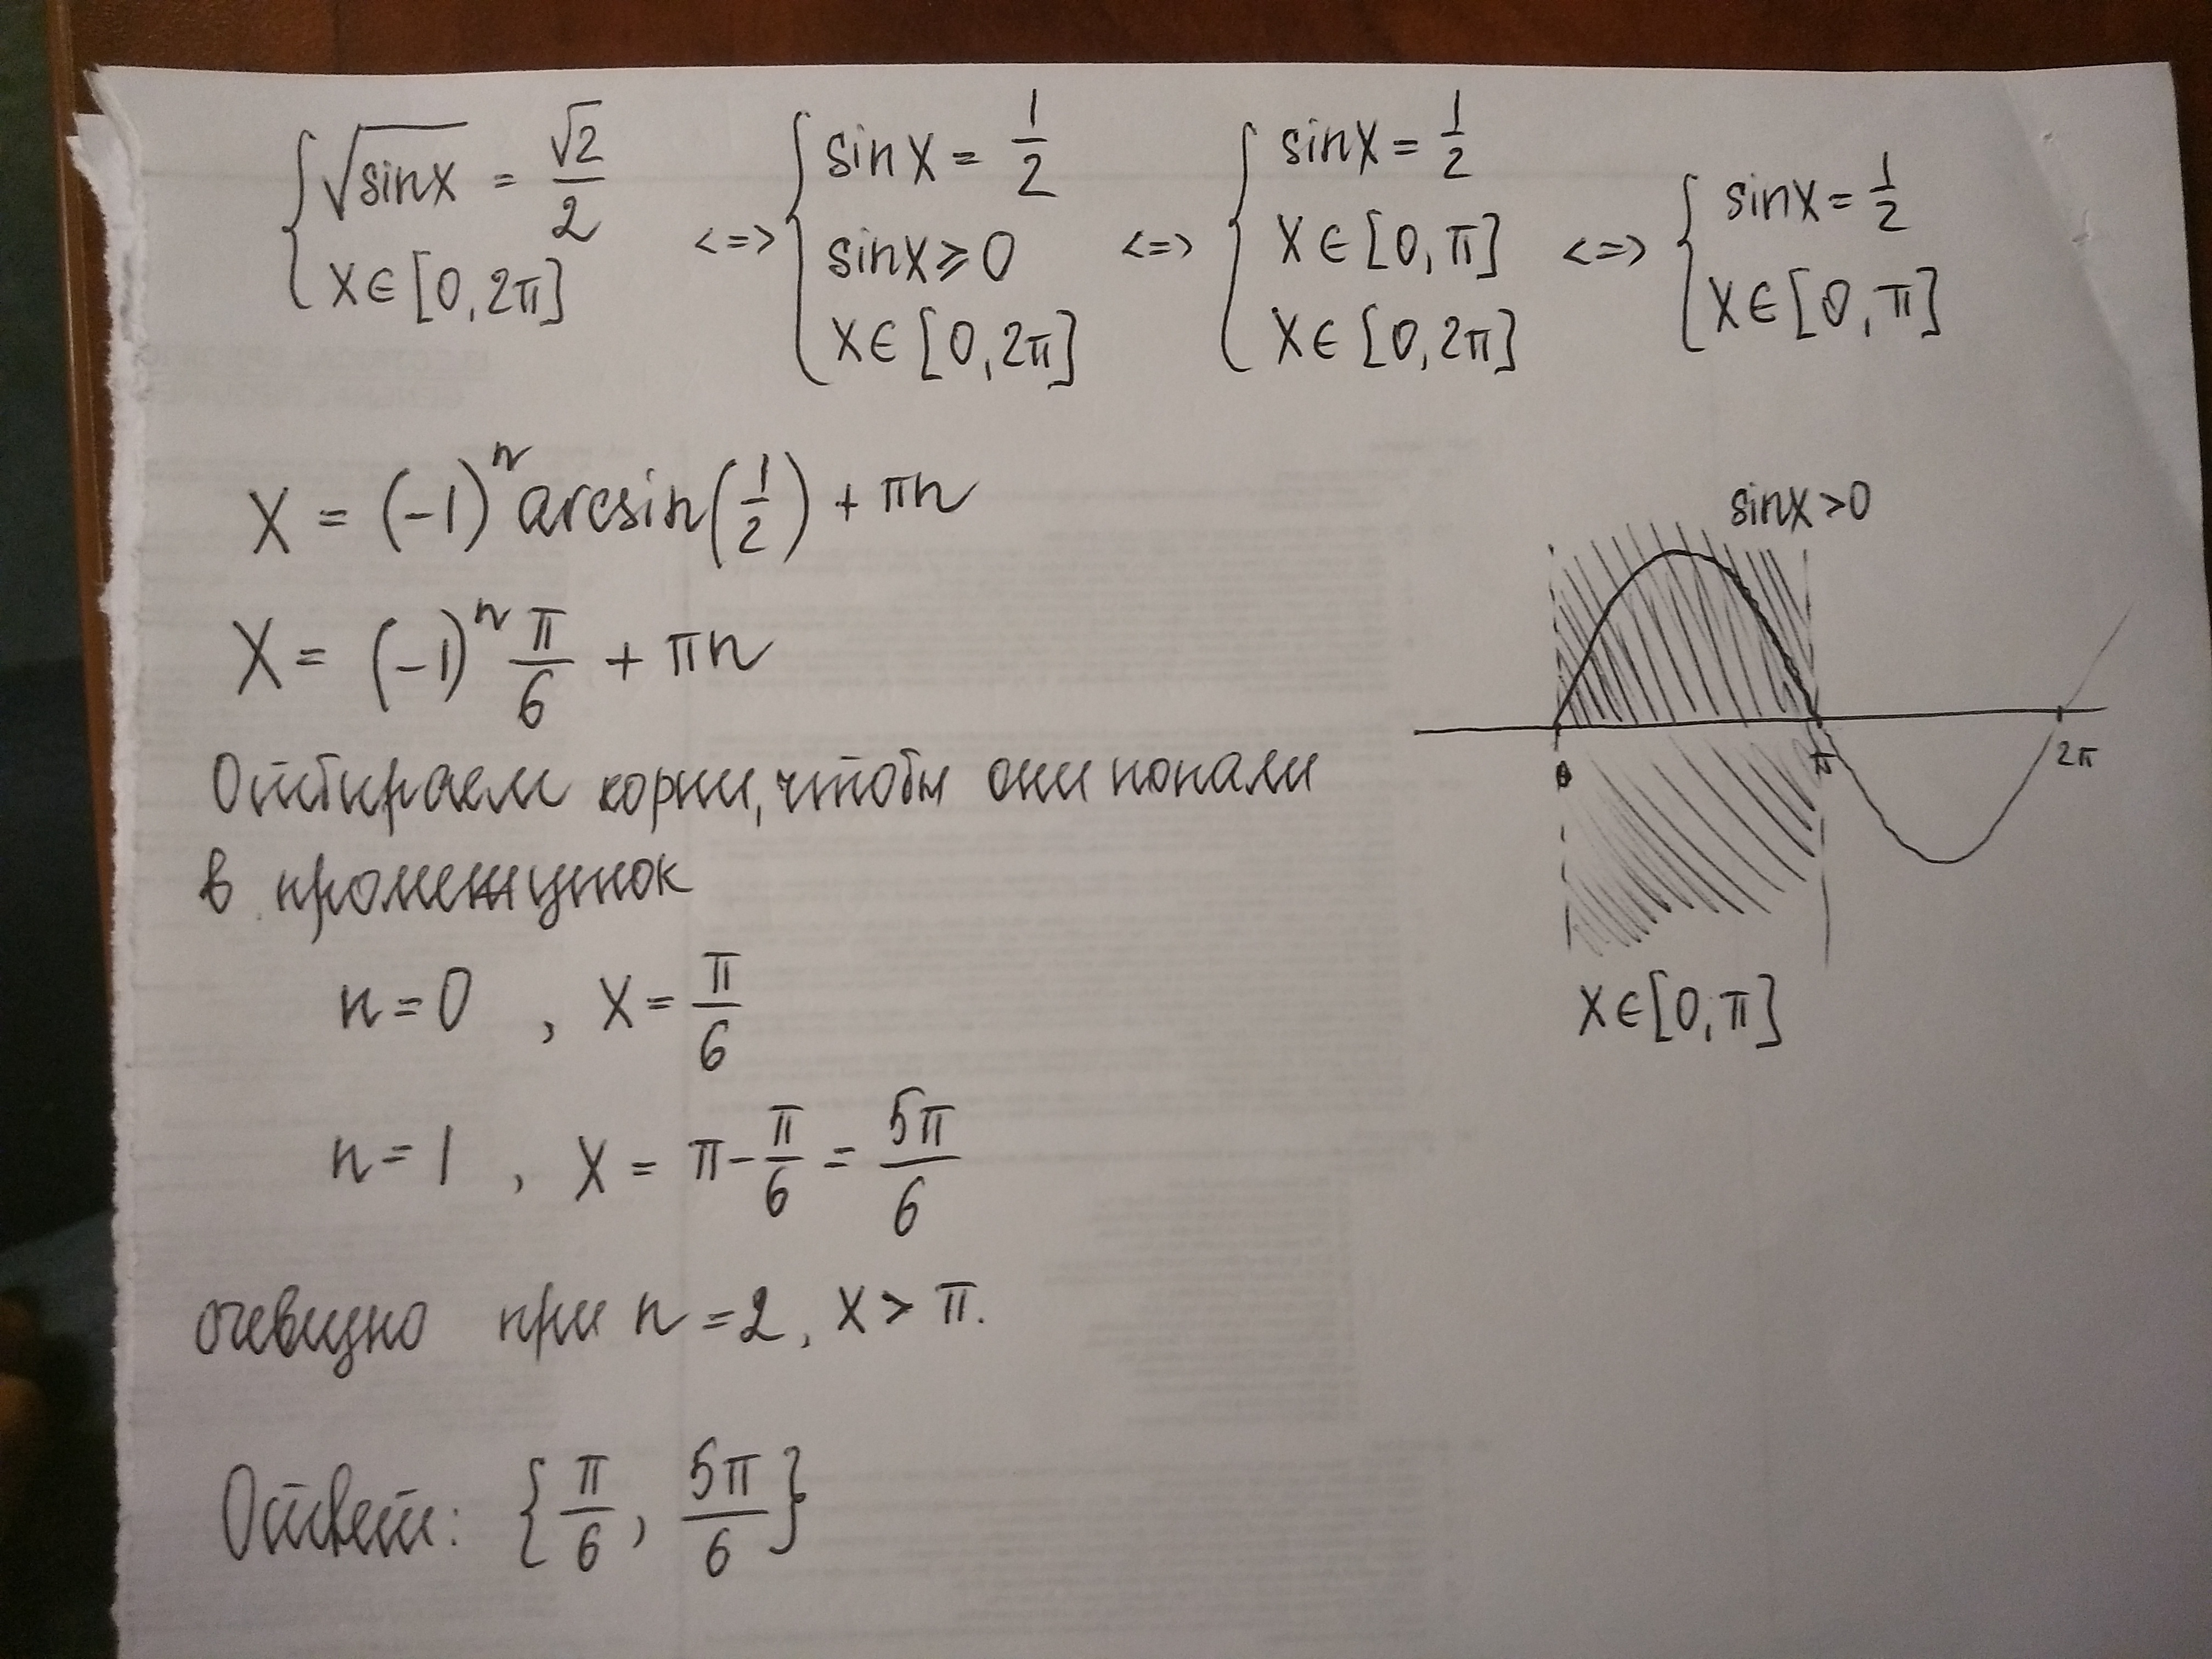 { √sinx = √2/2, x ∈ [0, 2π] <=> { sinx = 1/2, sinx ⩾ 0, x ∈ [0, 2π] <=> { sinx = 1/2, x ∈ [0, π], x ∈ [0, 2π] <=> { sinx = 1/2, x ∈ [0, π]
x = (-1)^n arcsin(1/2) + πn
x = (-1)^n π/6 + πn
Отбираем корни, чтобы они попали
в промежуток
n = 0 , x = π/6
n = 1 , x = π - π/6 = 5π/6
очевидно при n = 2, x > π.
Ответ: {π/6, 5π/6}
sinx > 0
0 π 2π
x ∈ [0, π]